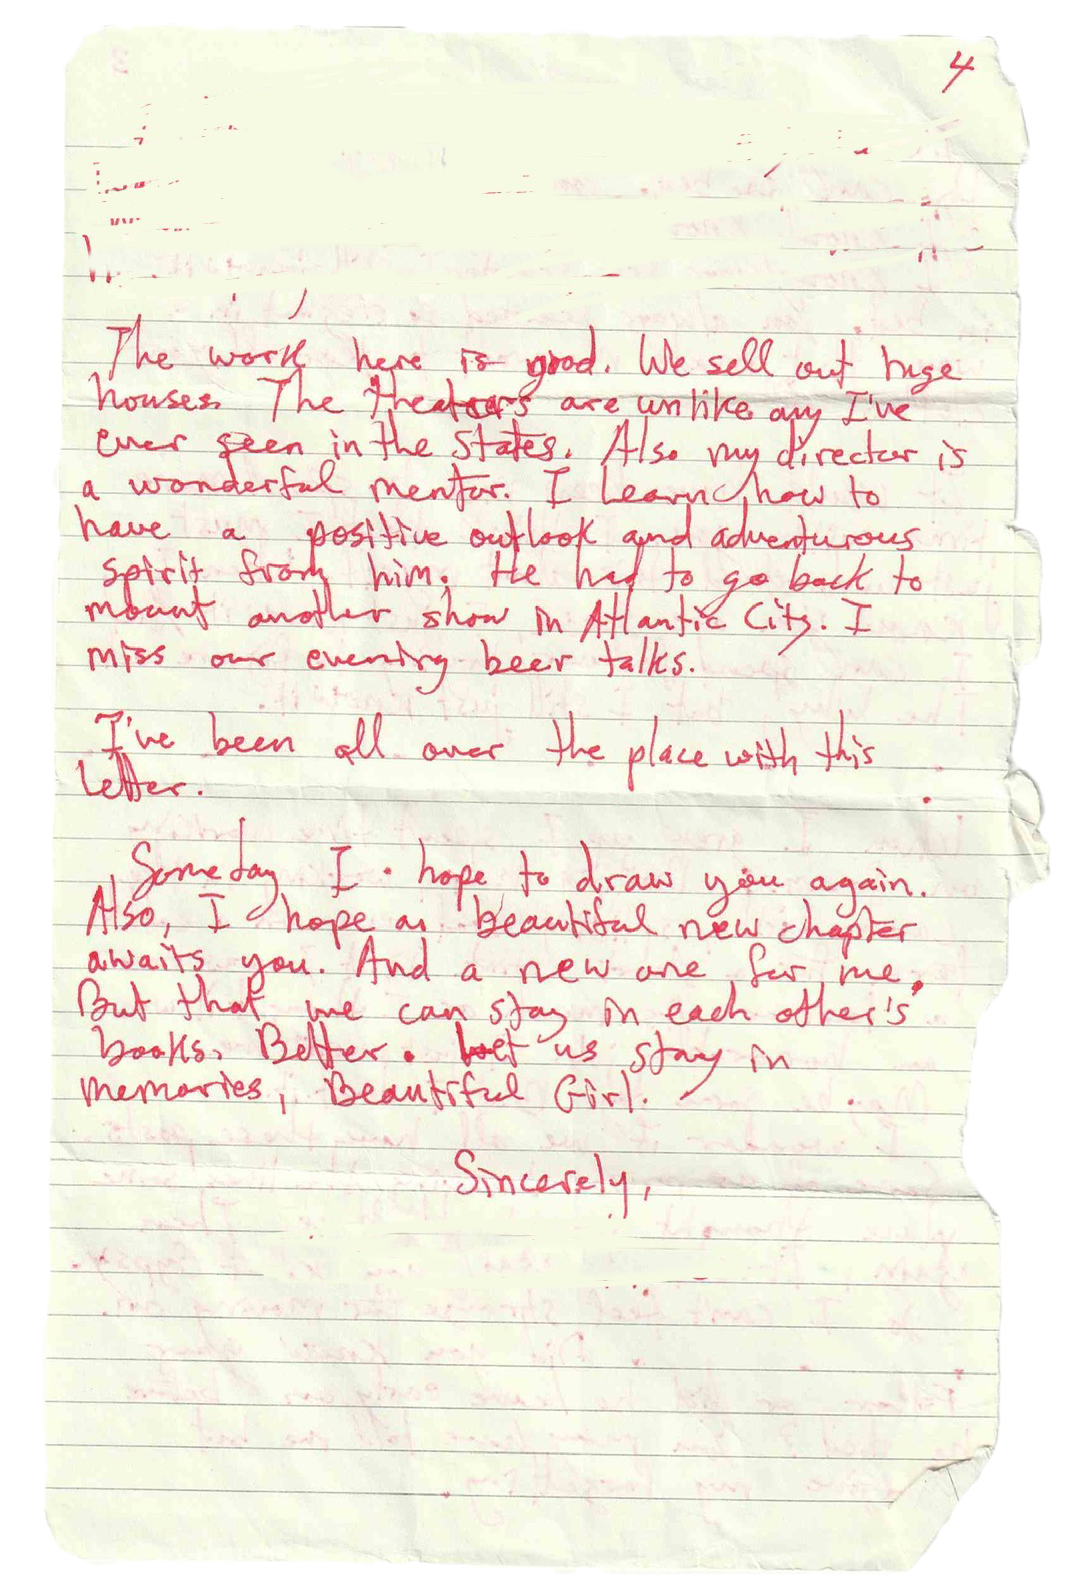 4
The work here is good. We sell out huge
houses. The theatears are unlike any I've
ever seen in the States. Also my director is
a wonderful mentor. I learn how to
have a positive outlook and adventurous
spirit from him. He had to go back to
mount another show in Atlantic City. I
miss our evening beer talks.
I've been all over the place with this
letter.
Someday I hope to draw you again.
Also, I hope a beautiful new chapter
awaits you. And a new one for me.
But that we can stay in each other's
books. Better. Let us stay in
memories, Beautiful Girl.
Sincerely,